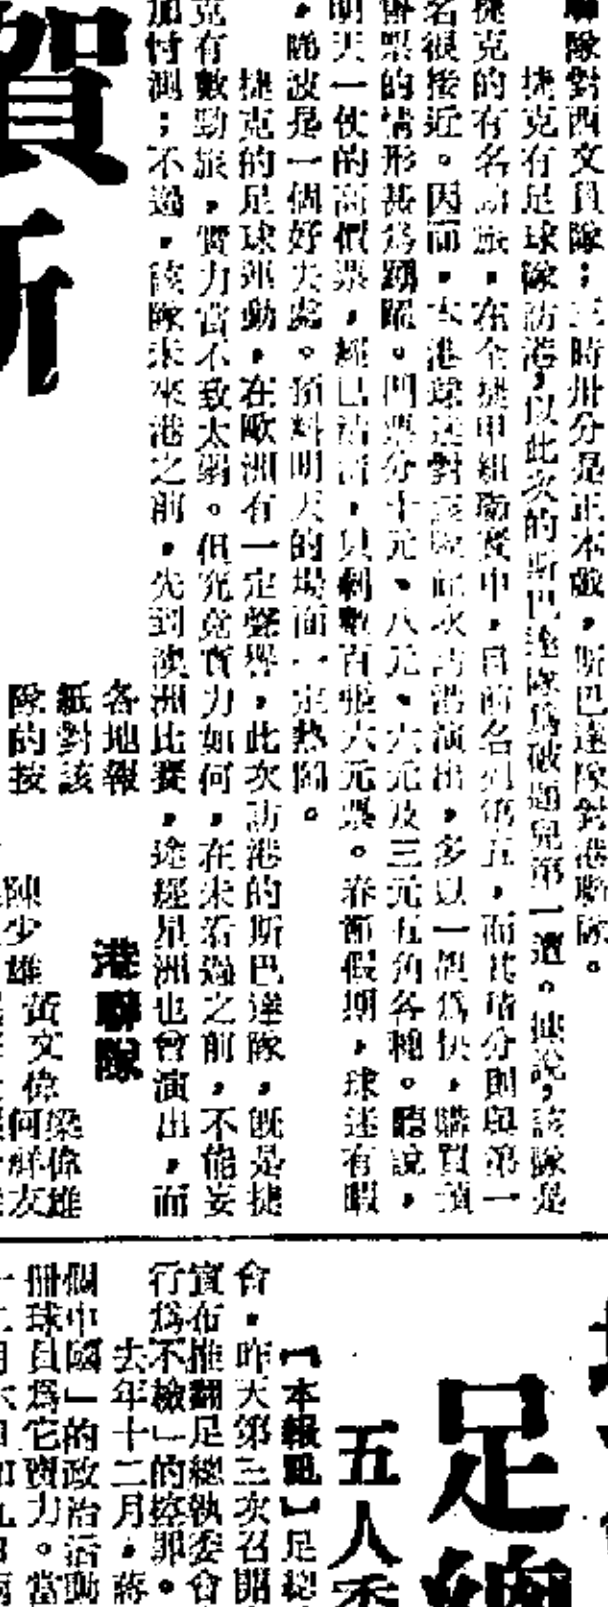 聯隊對西文員隊；三時卅分是正本戲，斯巴達隊對港聯隊。
捷克有足球隊訪港，以此次的斯巴達隊為破題兒第一遭。據說，該隊是
捷克的有名勁旅，在全捷甲組聯賽中，目前名列第五，而其積分則與第一
名很接近。因而，本港球迷對該隊此次訪港演出，多以一觀為快，購買預
售票的情形甚為踴躍。門票分十元、八元、六元及三元五角各種。聽說，
明天一仗的高價票，經已沽清，只剩數百張六元票。春節假期，球迷有暇
，睇波是一個好去處。預料明天的場面一定熱鬧。
捷克的足球運動，在歐洲有一定聲譽，此次訪港的斯巴達隊，既是捷
克有數勁旅，實力當不致太弱。但究竟實力如何，在未看過之前，不能妄
加忖測；不過，該隊未來港之前，先到澳洲比賽，途經星洲也曾演出，而
各地報
紙對該
隊的按
賀
新
港聯隊
梁偉雄
黃文偉 何祥友
陳少雄
足總
五人委
【本報訊】足總
會，昨天第三次召開
宣布推翻足總執委會
行為不檢」的控罪。
去年十二月，蔣
個中國」的政治活動
冊球員為它賣力。當